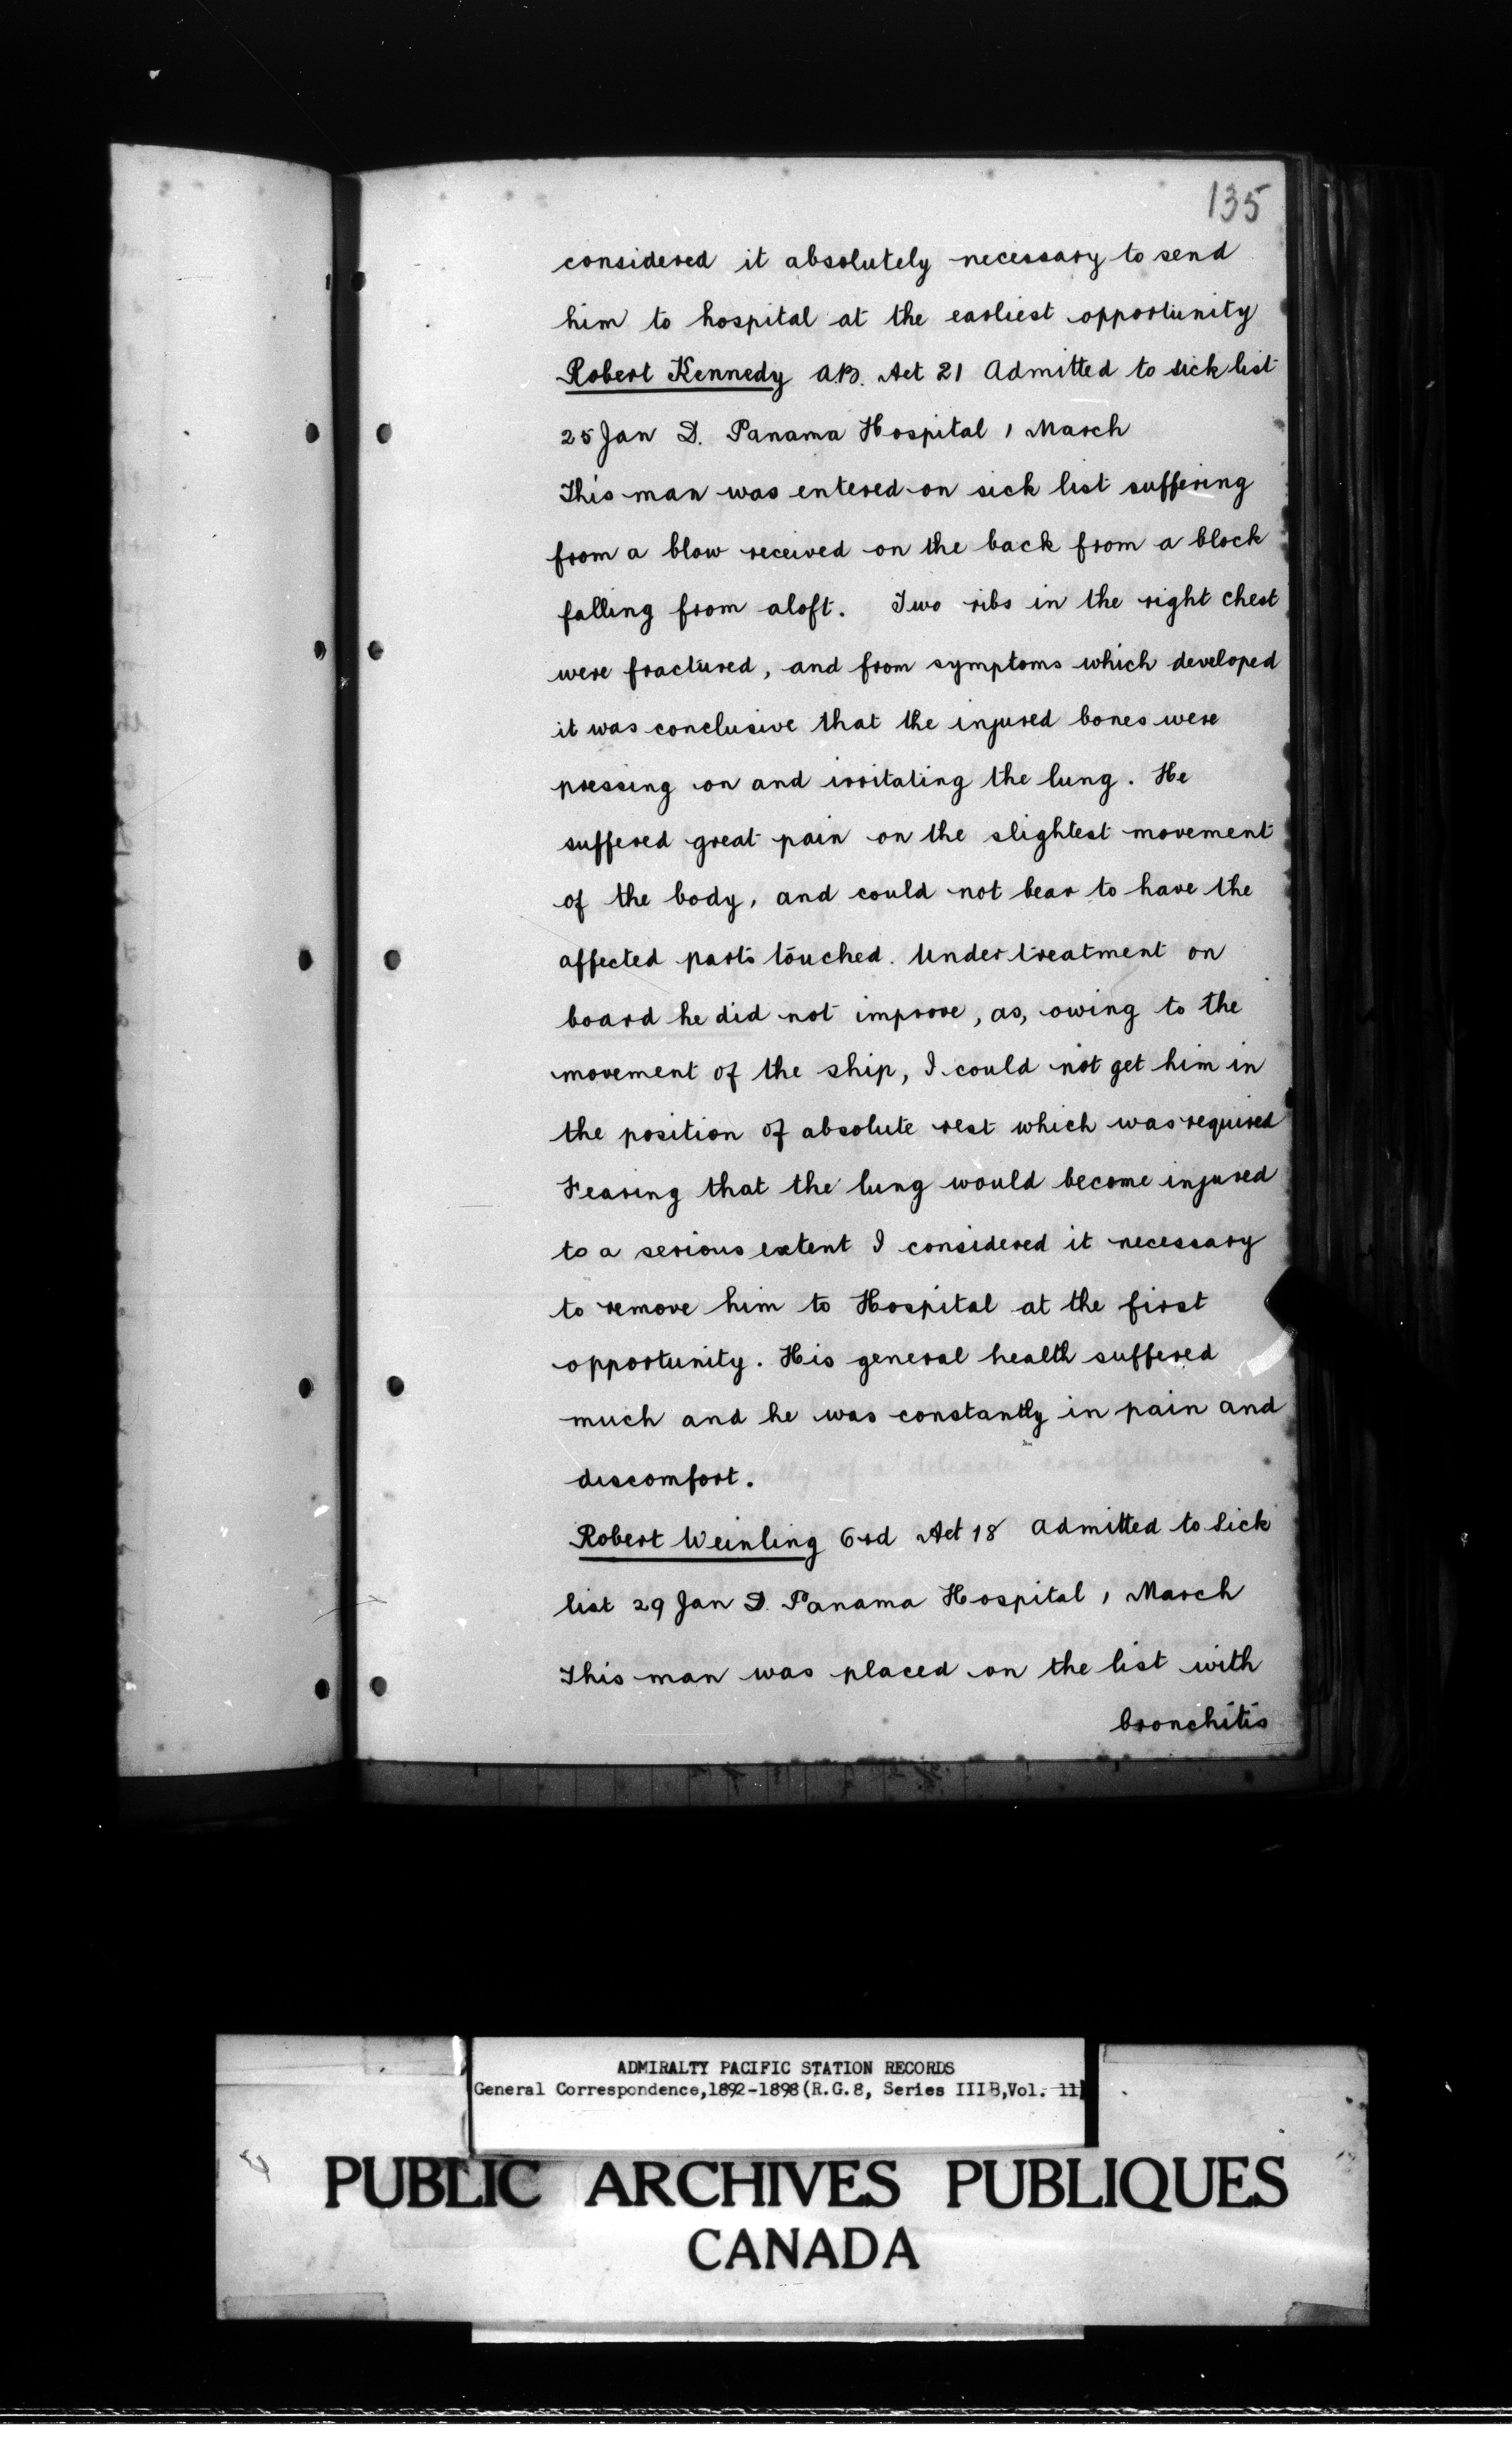 135
considered it absolutely necessary to send
him to hospital at the earliest opportunity
Robert Kennedy A.B. Aet 21 Admitted to sick list
25 Jan D. Panama Hospital 1 March
This man was entered on sick list suffering
from a blow received on the back from a block
falling from aloft. Two ribs in the right chest
were fractured, and from symptoms which developed
it was conclusive that the injured bones were
pressing on and irritating the lung. He
suffered great pain on the slightest movement
of the body, and could not bear to have the
affected parts touched. Under treatment on
board he did not improve, as, owing to the
movement of the ship, I could not get him in
the position of absolute rest which was required
Fearing that the lung would become injured
to a serious extent I considered it necessary
to remove him to Hospital at the first
opportunity. His general health suffered
much and he was constantly in pain and
discomfort.
Robert Weinling Ord Aet 18 Admitted to Sick
list 29 Jan D. Panama Hospital 1 March
This man was placed on the list with
bronchitis
ADMIRALTY PACIFIC STATION RECORDS
General Correspondence,1892-1898(R.G.8, Series IIIB,Vol. 11)
PUBLIC ARCHIVES PUBLIQUES
CANADA